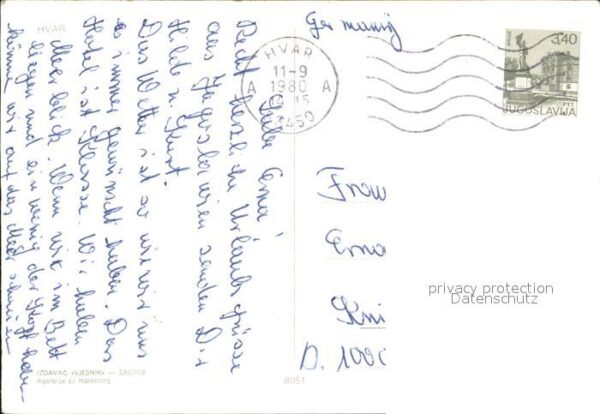 HVAR
Liebe Erna!
Recht herzliche Urlaubsgrüsse
aus Jugoslawien senden Dir
Hilde u. Kurt.
Das Wetter ist so wie wir uns
es immer gewünscht haben. Das
Hotel ist Klasse. Wir haben
Meerblick. Wenn wir im Bett
liegen und ein wenig den Kopf heben
können wir auf das Meer schauen
IZDAVAČ «VJESNIK» — ZAGREB
Agencija za marketing
8051
Germany
HVAR
11-9
A 1980 A
15
3450
3,40
HVAR
PTT
JUGOSLAVIJA
Frau
Erna
D. 1000
privacy protection
Datenschutz